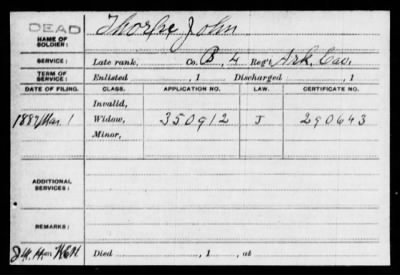 DEAD
NAME OF SOLDIER: Thorpe John
SERVICE: Late rank, Co. B, 4 Reg't Ark. Cav.
TERM OF SERVICE: Enlisted , 1 Discharged , 1
DATE OF FILING. CLASS. APPLICATION NO. LAW. CERTIFICATE NO.
Invalid,
1887 Mar. 1 Widow, 350912 J 290643
Minor,
ADDITIONAL SERVICES:
REMARKS:
Died , 1 , at